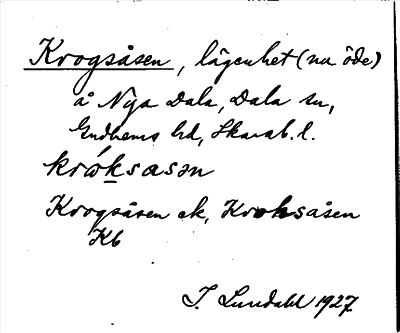 Krogsåsen, lägenhet (nu öde)
å Nya Dala, Dala sn,
Gudhems hd, Skarab. l.
króksasən
Krogsåsen ek, Krohsåsen
Kb
J. Lundahl 1927